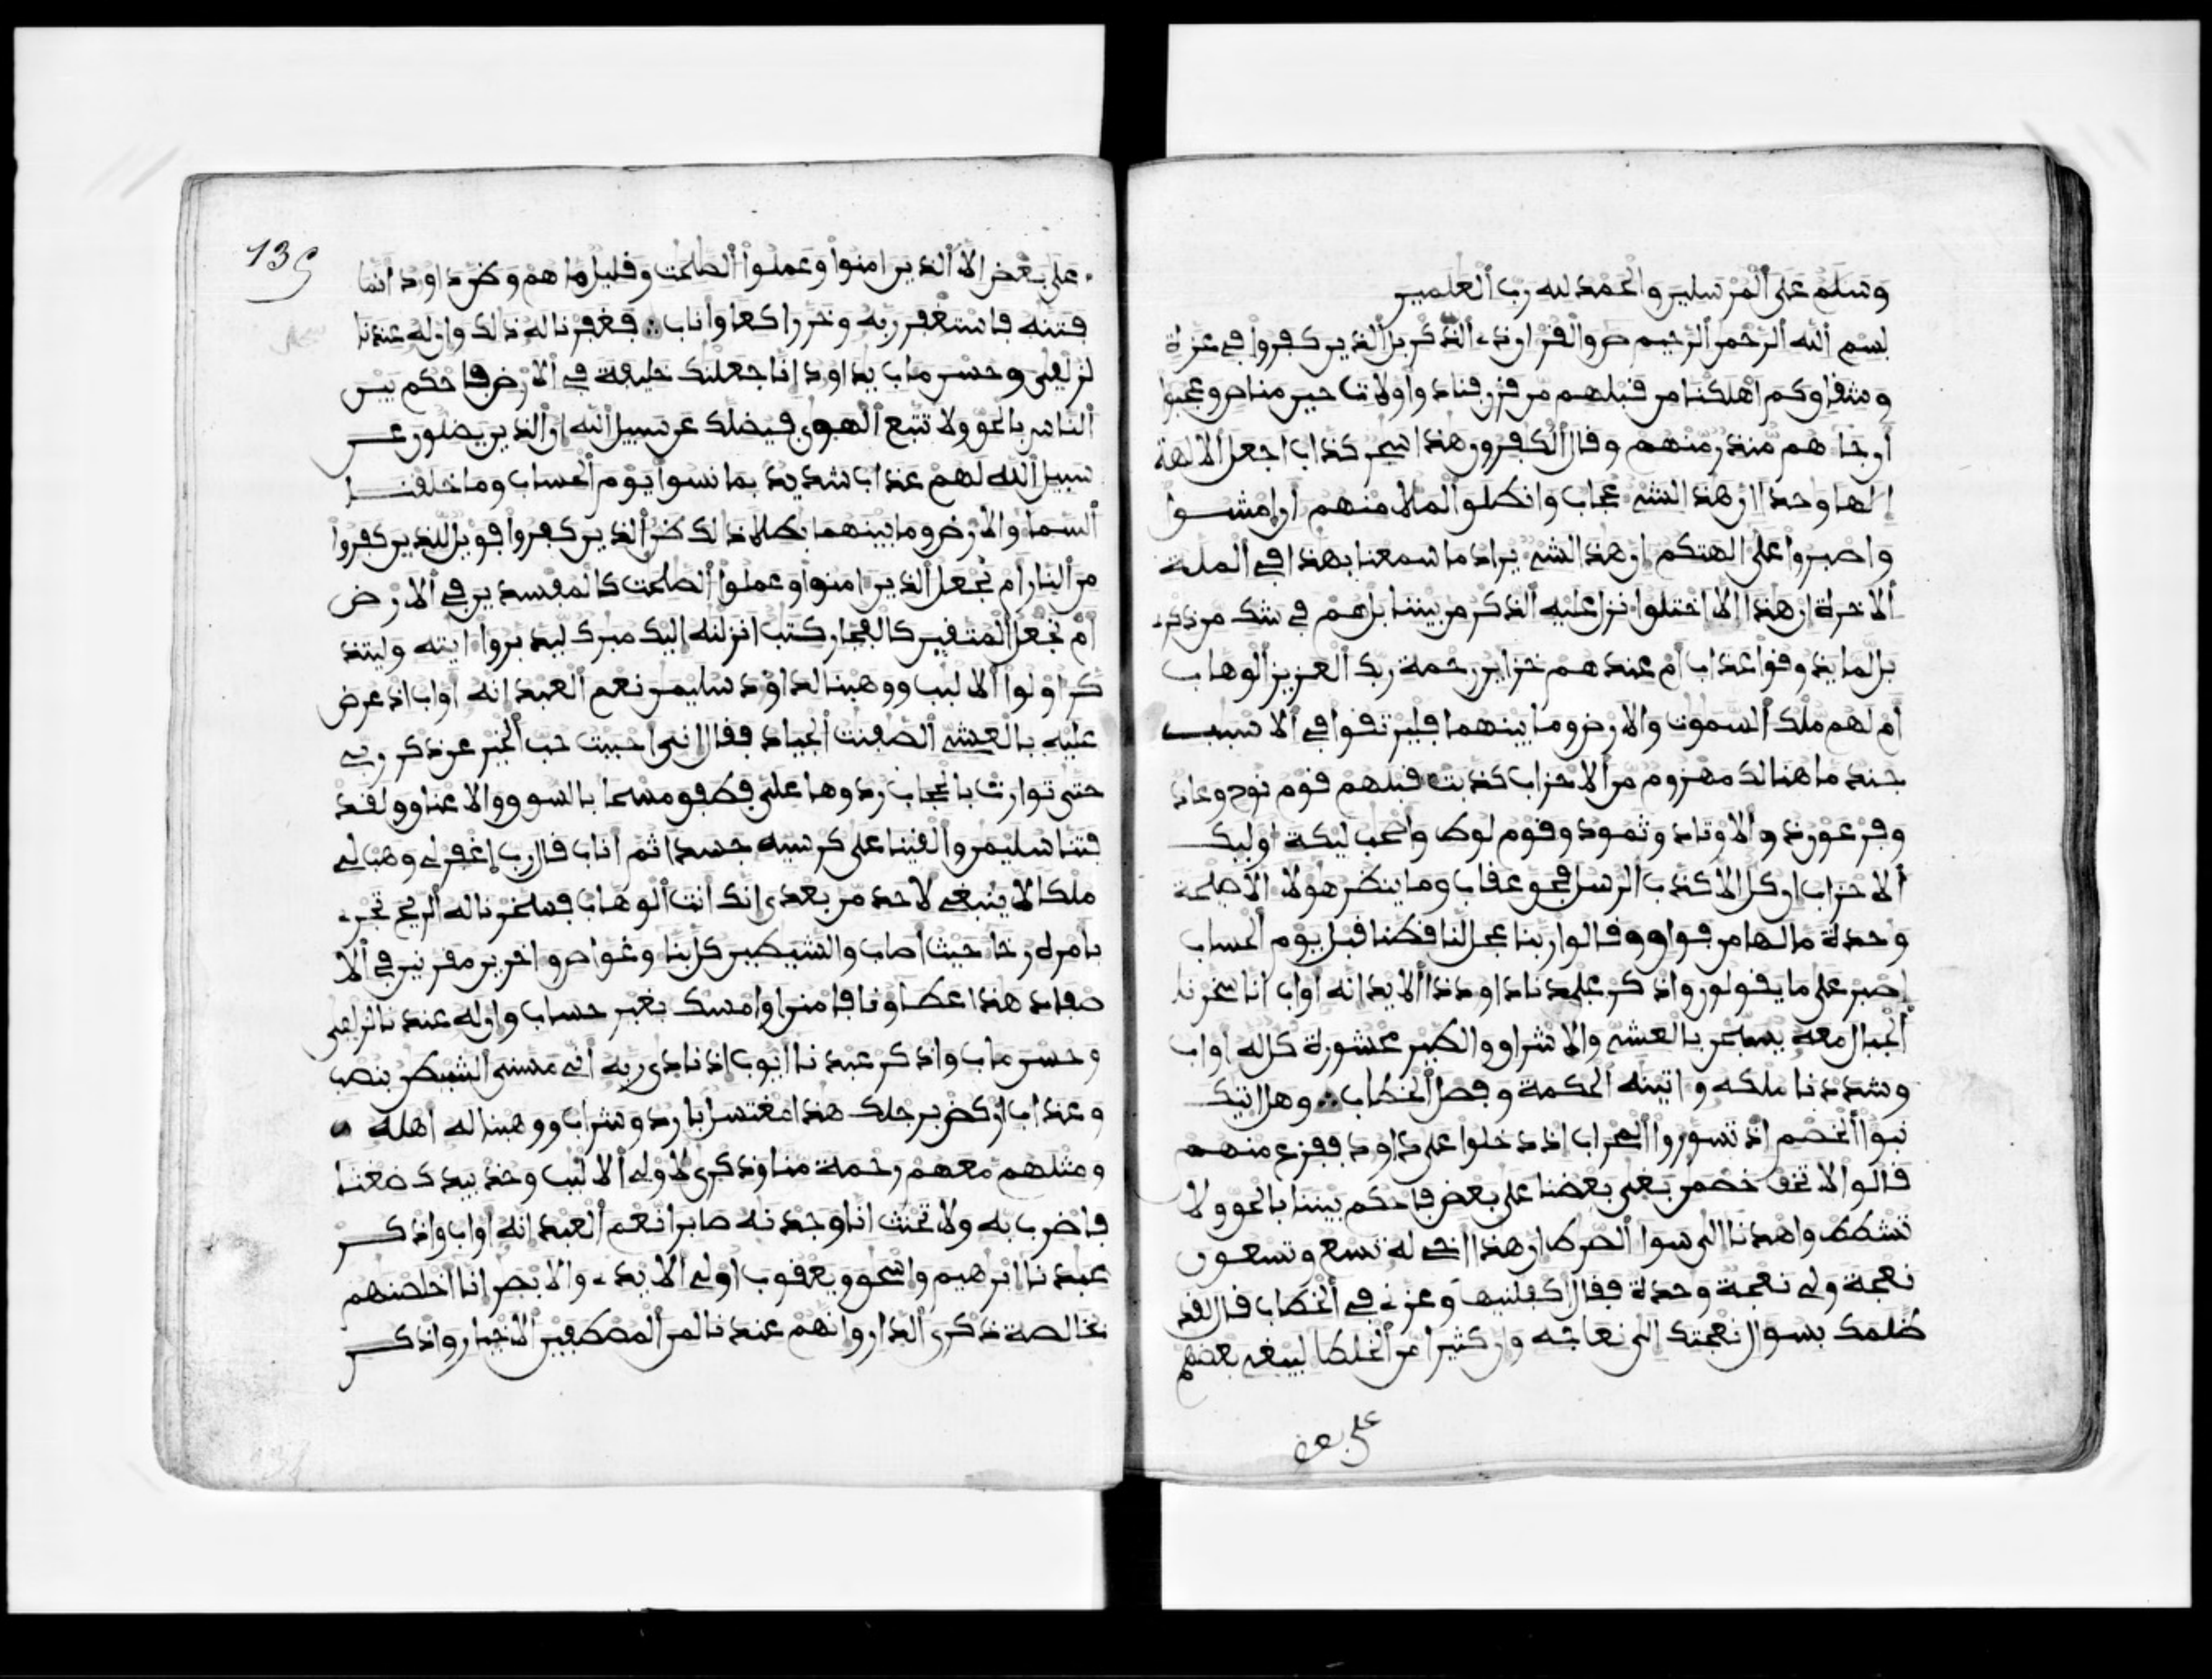 وسلم على المرسلين والحمد لله رب العلمين
بسم الله الرحمن الرحيم ص والقران ذي الذكر بل الذين كفروا في عزة
وشقاق كم اهلكنا من قبلهم من قرن فنادوا ولات حين مناص وعجبوا
ان جاهم منذر منهم وقال الكفرون هذا سحر كذاب اجعل الالهة
الها وحدا ان هذا لشيء عجاب وانطلق الملا منهم ان امشوا
واصبروا على الهتكم ان هذا لشيء يراد ما سمعنا بهذا في الملة
الاخرة ان هذا الا اختلق انزل عليه الذكر من بيننا بل هم في شك من ذكري
بل لما يذوقوا عذاب ام عندهم خزاين رحمة ربك العزيز الوهاب
ام لهم ملك السموت والارض وما بينهما فليرتقوا في الاسبب
جند ما هنالك مهزوم من الاحزاب كذبت قبلهم قوم نوح وعاد
وفرعون ذو الاوتاد وثمود وقوم لوط واصحب ليكة اوليك
الاحزاب ان كل الا كذب الرسل فحق عقاب وما ينظر هولا الا صيحة
وحدة ما لها من فواق وقالوا ربنا عجل لنا قطنا قبل يوم الحساب
اصبر على ما يقولون واذكر عبدنا داود ذا الايد انه اواب انا سخرنا
الجبال معه يسبحن بالعشي والاشراق والطير محشورة كل له اواب
وشددنا ملكه واتينه الحكمة وفصل الخطاب ∴ وهل اتيك
نبؤا الخصم اذ تسوروا المحراب اذ دخلوا على داود ففزع منهم
قالوا لا تخف خصمن بغى بعضنا على بعض فاحكم بيننا بالحق ولا
تشطط واهدنا الى سوا الصرط ان هذا اخي له تسع وتسعون
نعجة ولي نعجة وحدة فقال اكفلنيها وعزني في الخطاب قال لقد
ظلمك بسوال نعجتك الى نعاجه وان كثيرا من الخلطا ليبغي بعضهم
على بعض
على بعض الا الذين امنوا وعملوا الصلحت وقليل ما هم وظن داود انما
فتنه فاستغفر ربه وخر راكعا واناب ∴ فغفرنا له ذالك وان له عندنا
لزلفى وحسن ماب يداود انا جعلنك خليفة في الارض فاحكم بين
الناس بالحق ولا تتبع الهوى فيضلك عن سبيل الله ان الذين يضلون عن
سبيل الله لهم عذاب شديد بما نسوا يوم الحساب وما خلقنا
السما والارض وما بينهما بطلا ذالك ظن الذين كفروا فويل للذين كفروا
من النار ام نجعل الذين امنوا وعملوا الصلحت كالمفسدين في الارض
ام نجعل المتقين كالفجار كتب انزلنه اليك مبرك ليدبروا ايته وليتذ
كر اولوا الالبب ووهبنا لداود سليمن نعم العبد انه اواب اذ عرض
عليه بالعشي الصفنت الجياد فقال اني احببت حب الخير عن ذكر ربي
حتى توارت بالحجاب ردوها علي فطفق مسحا بالسوق والاعناق ولقد
فتنا سليمن والقينا على كرسيه جسدا ثم اناب قال رب اغفر لي وهب لي
ملكا لا ينبغي لاحد من بعدي انك انت الوهاب فسخرنا له الريح تجري
بامره رخا حيث اصاب والشيطين كل بنا وغواص واخرين مقرنين في الا
صفاد هذا عطاونا فامنن او امسك بغير حساب وان له عندنا لزلفى
وحسن ماب واذكر عبدنا ايوب اذ نادى ربه اني مسني الشيطن بنصب
وعذاب اركض برجلك هذا مغتسل بارد وشراب ووهبنا له اهله
ومثلهم معهم رحمة منا وذكرى لاولي الالبب وخذ بيدك ضغثا
فاضرب به ولا تحنث انا وجدنه صابرا نعم العبد انه اواب واذكر
عبدنا ابرهيم واسحق ويعقوب اولي الايدي والابصر انا اخلصنهم
بخالصة ذكرى الدار وانهم عندنا لمن المصطفين الاخيار واذكر